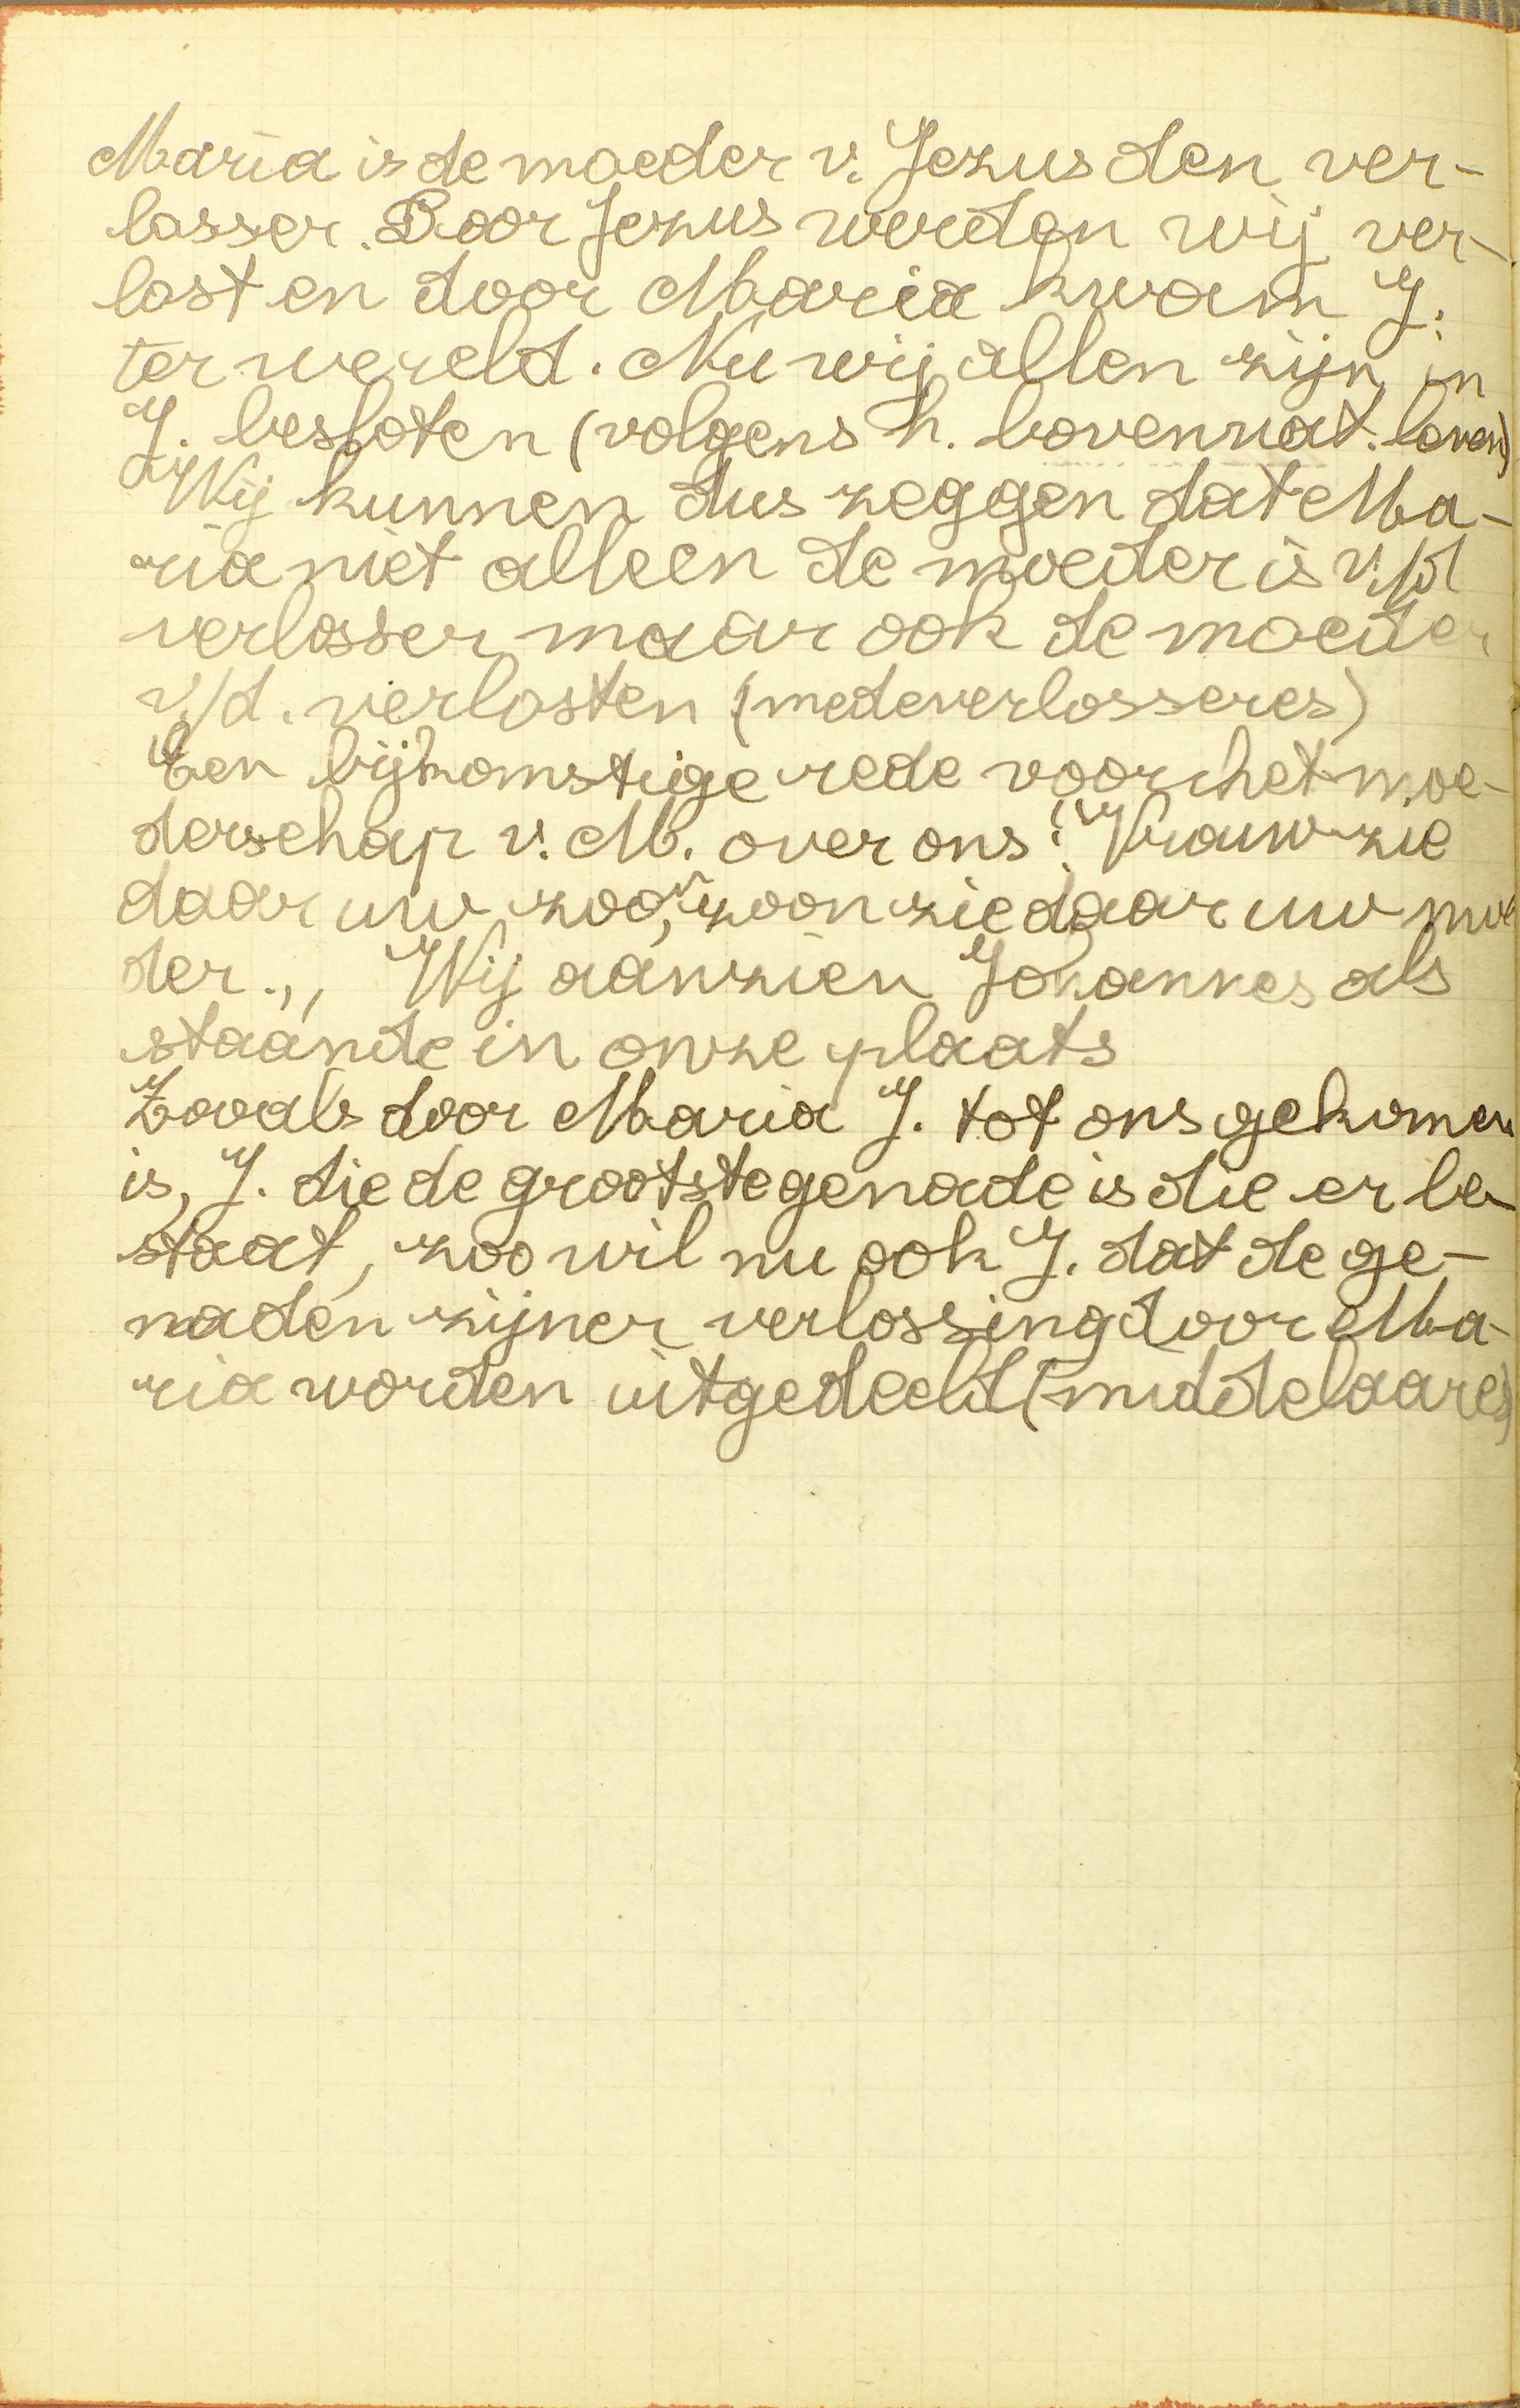 Maria is de moeder v. Jezus den ver-
losser. Door Jezus werden wij ver-
lost en door Maria kwam J.
ter wereld. Nu wij allen zijn in
J. besloten (volgens h. bovennat. leven)
Wij kunnen dus zeggen dat Ma-
ria niet alleen de moeder is v/d
verlosser maar ook de moeder
v/d. verlosten (medeverlosseres)
Een bijkomstige rede voor het moe-
derschap v. M. over ons: "Vrouw zie
daar uw zoon, zoon zie daar uw moe
der.,, Wij aanzien Johannes als
staande in onze plaats
Zooals door Maria J. tot ons gekomen
is, J. die de grootste genade is die er be-
staat, zoo wil nu ook J. dat de ge-
naden zijner verlossing door Ma-
ria worden uitgedeeld (middelaares)